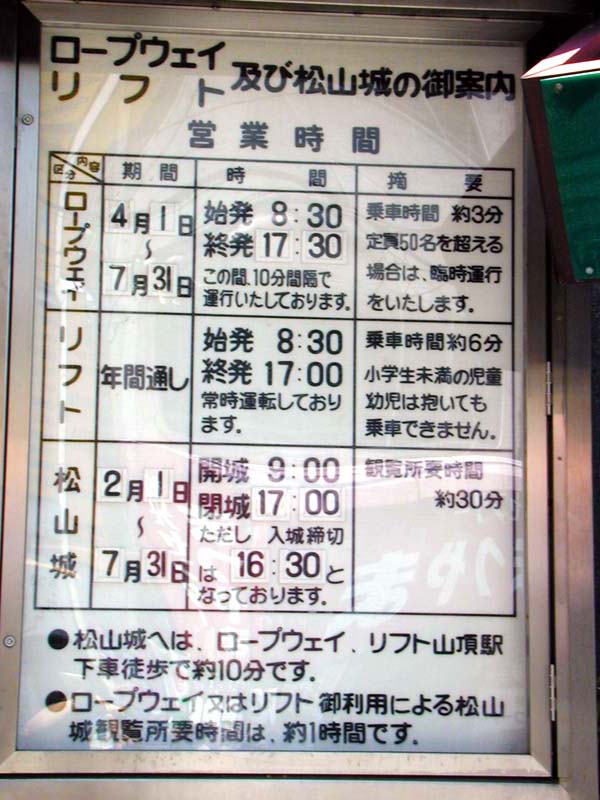 ロープウェイ
リフト 及び松山城の御案内
営業時間
内容
区分
期間
時間
摘要
ロープウェイ
4月1日
〜
7月31日
始発 8:30
終発 17:30
この間、10分間隔で
運行いたしております。
乗車時間 約3分
定員50名を超える
場合は、臨時運行
をいたします。
リフト
年間通し
始発 8:30
終発 17:00
常時運転しており
ます。
乗車時間約6分
小学生未満の児童
幼児は抱いても
乗車できません。
松山城
2月1日
〜
7月31日
開城 9:00
閉城 17:00
ただし 入城締切
は 16:30と
なっております。
観覧所要時間
約30分
●松山城へは、ロープウェイ、リフト山頂駅
下車徒歩で約10分です。
●ロープウェイ又はリフト御利用による松山
城観覧所要時間は、約1時間です。